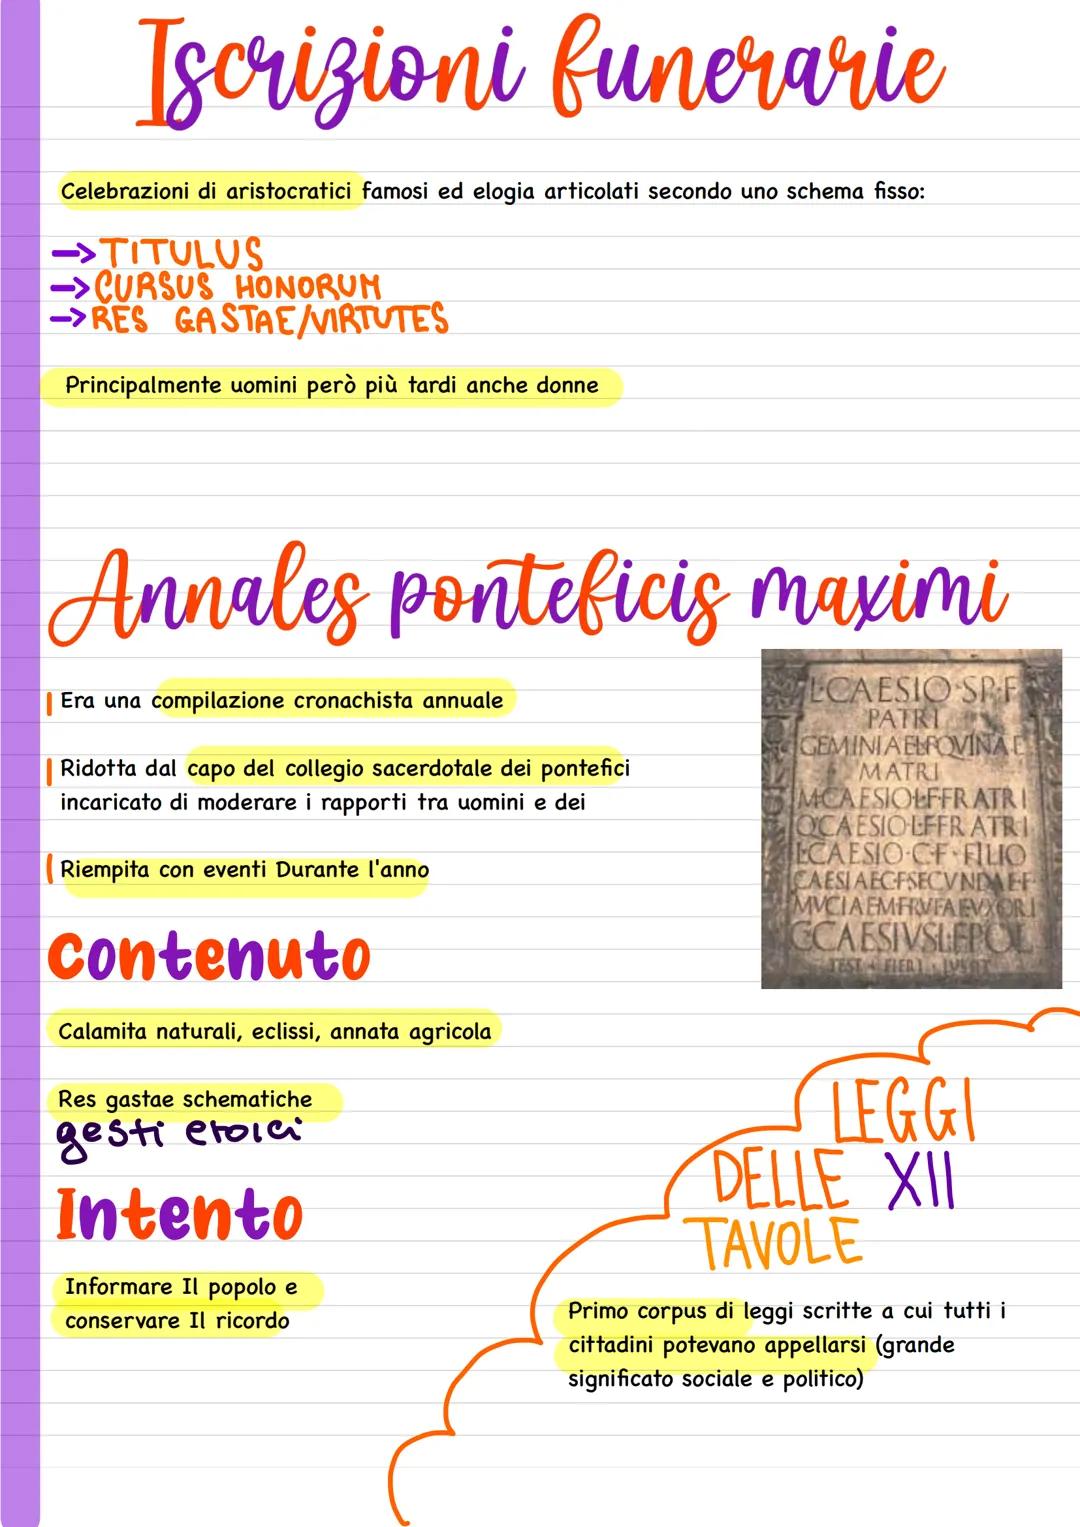 Iscrizioni funerarie
Celebrazioni di aristocratici famosi ed elogia articolati secondo uno schema fisso:
→ TITULUS
→ CURSUS HONORUM
→ RES GASTAE/VIRTUTES
Principalmente uomini però più tardi anche donne
Annales ponteficis maximi
Era una compilazione cronachista annuale
Ridotta dal capo del collegio sacerdotale dei pontefici
incaricato di moderare i rapporti tra uomini e dei
Riempita con eventi Durante l'anno
L·CAESIO·SP·F
PATRI
GEMINIAE·L·F·QVINAE
MATRI
M·CAESIO·L·F·FRATRI
Q·CAESIO·L·F·FRATRI
L·CAESIO·C·F·FILIO
CAESIAE·C·F·SECVNDAE·F
MVCIAE·M·F·RVFAE·VXORI
C·CAESIVS·L·F·POL
TEST · FIERI · IVSSIT
Contenuto
Calamita naturali, eclissi, annata agricola
Res gastae schematiche
gesti eroici
Intento
Informare Il popolo e
conservare Il ricordo
LEGGI
DELLE XII
TAVOLE
Primo corpus di leggi scritte a cui tutti i
cittadini potevano appellarsi (grande
significato sociale e politico)